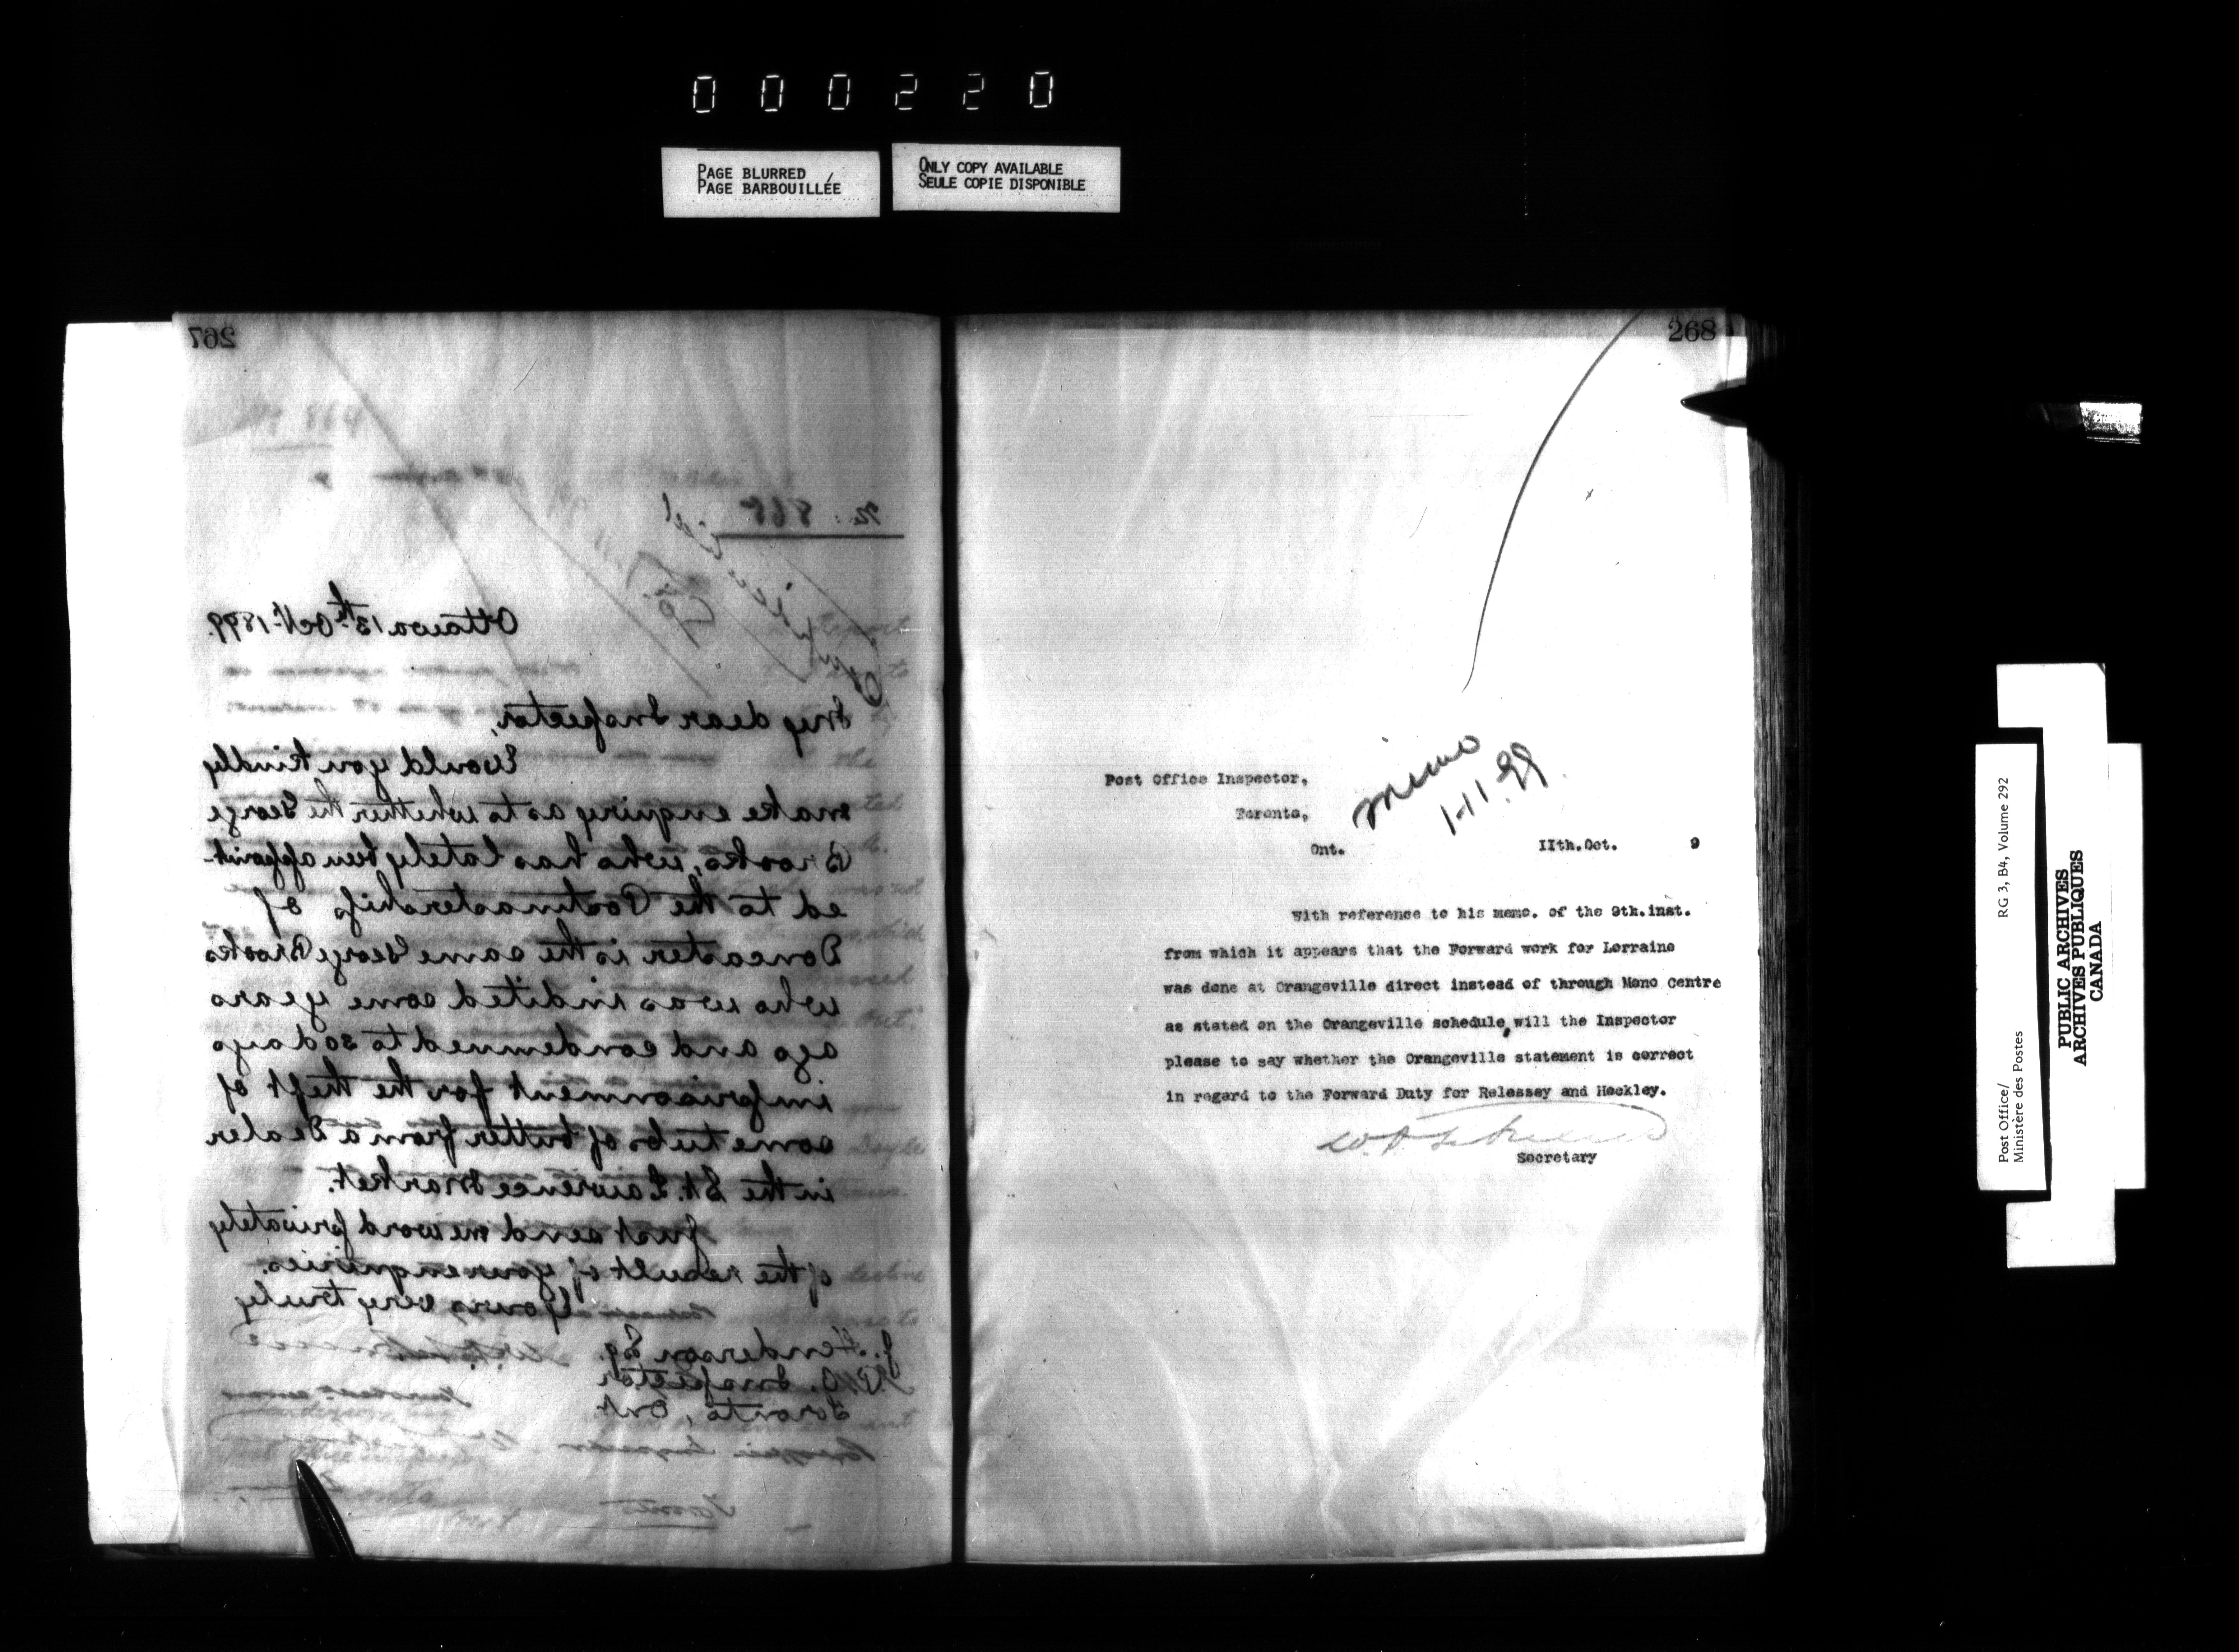 000220
PAGE BLURRED
PAGE BARBOUILLÉE
ONLY COPY AVAILABLE
SEULE COPIE DISPONIBLE
267
No. 868
Ottawa 13th Oct. 1899.
My dear Inspector,
Would you kindly
make enquiry as to whether the George
Brooks, who has lately been appoint-
ed to the Postmastership of
Doncaster is the same George Brooks
who was indited some years
ago and condemned to 30 days
imprisonment for the theft of
some tubs of butter from a dealer
in the St. Lawrence Market.
Just send me word privately
of the result of your enquiries.
Yours very truly
J. Henderson Esq.
P.O. Inspector
Toronto, Ont.
268
Post Office Inspector,
Toronto,
Ont.
11th.Oct. 9
memo
1.11.99
With reference to his memo. of the 9th.inst.
from which it appears that the Forward work for Lorraine
was done at Orangeville direct instead of through Mono Centre
as stated on the Orangeville schedule, will the Inspector
please to say whether the Orangeville statement is correct
in regard to the Forward Duty for Relessey and Hockley.
Secretary
Post Office/
Ministère des Postes
RG 3, B4, Volume 292
PUBLIC ARCHIVES
ARCHIVES PUBLIQUES
CANADA